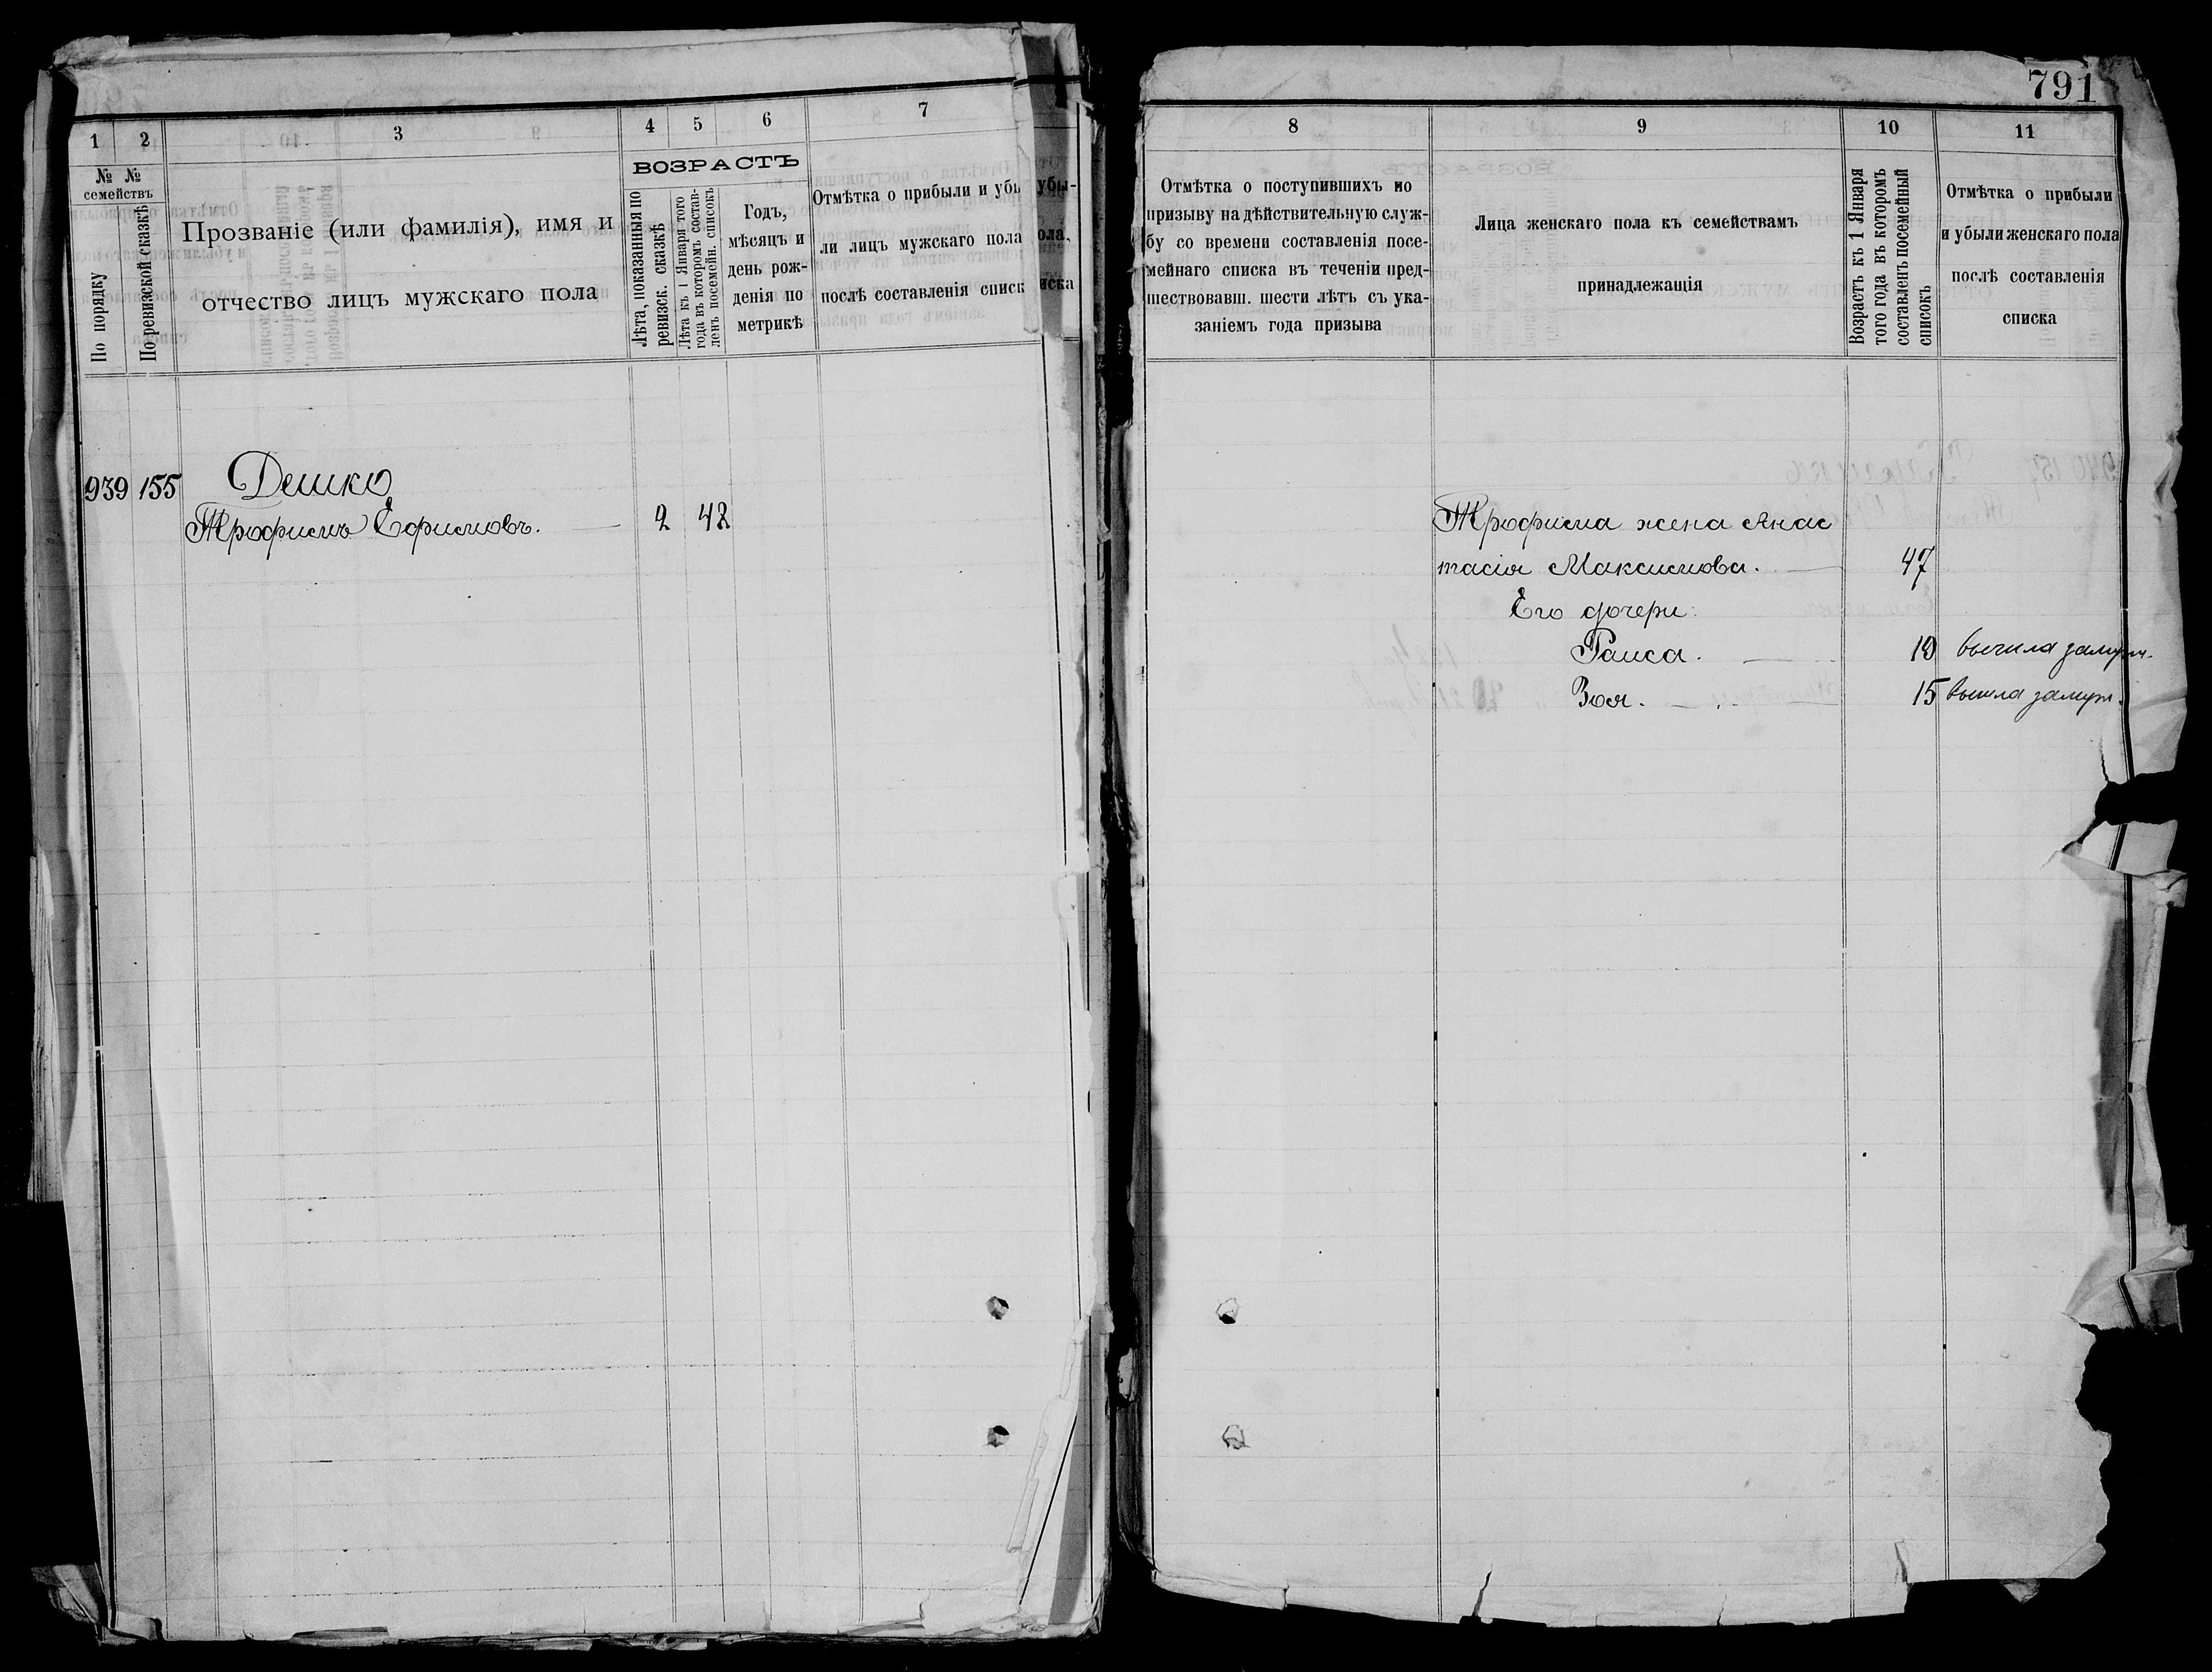 791
1 2 3 4 5 6 7
№ № семействъ
По порядку
По ревизской сказкѣ
Прозваніе (или фамилія), имя и
отчество лицъ мужскаго пола
ВОЗРАСТЪ
Лѣта, показанныя по
ревизск. сказкѣ
Лѣта къ 1 Января того
года въ которомъ состав-
ленъ посемейн. списокъ
Годъ,
мѣсяцъ и
день рож-
денія по
метрикѣ
Отмѣтка о прибыли и убы-
ли лицъ мужскаго пола
послѣ составленія списк
убы-
ола,
иска
939 155 Дешко
Трофимъ Ефимовъ. 2 42
8 9 10 11
Отмѣтка о поступившихъ по
призыву на дѣйствительную служ-
бу со времени составленія посе-
мейнаго списка въ теченіи пред-
шествовавш. шести лѣтъ съ ука-
заніемъ года призыва
Лица женскаго пола къ семействамъ
принадлежащія
Возрастъ къ 1 Января
того года въ которомъ
составленъ посемейный
списокъ
Отмѣтка о прибыли
и убыли женскаго пола
послѣ составленія
списка
Трофима жена Анас
тасія Максимова. 47
Его дочери:
Раиса. 19 вышла замуж.
Зоя. 15 вышла замуж.